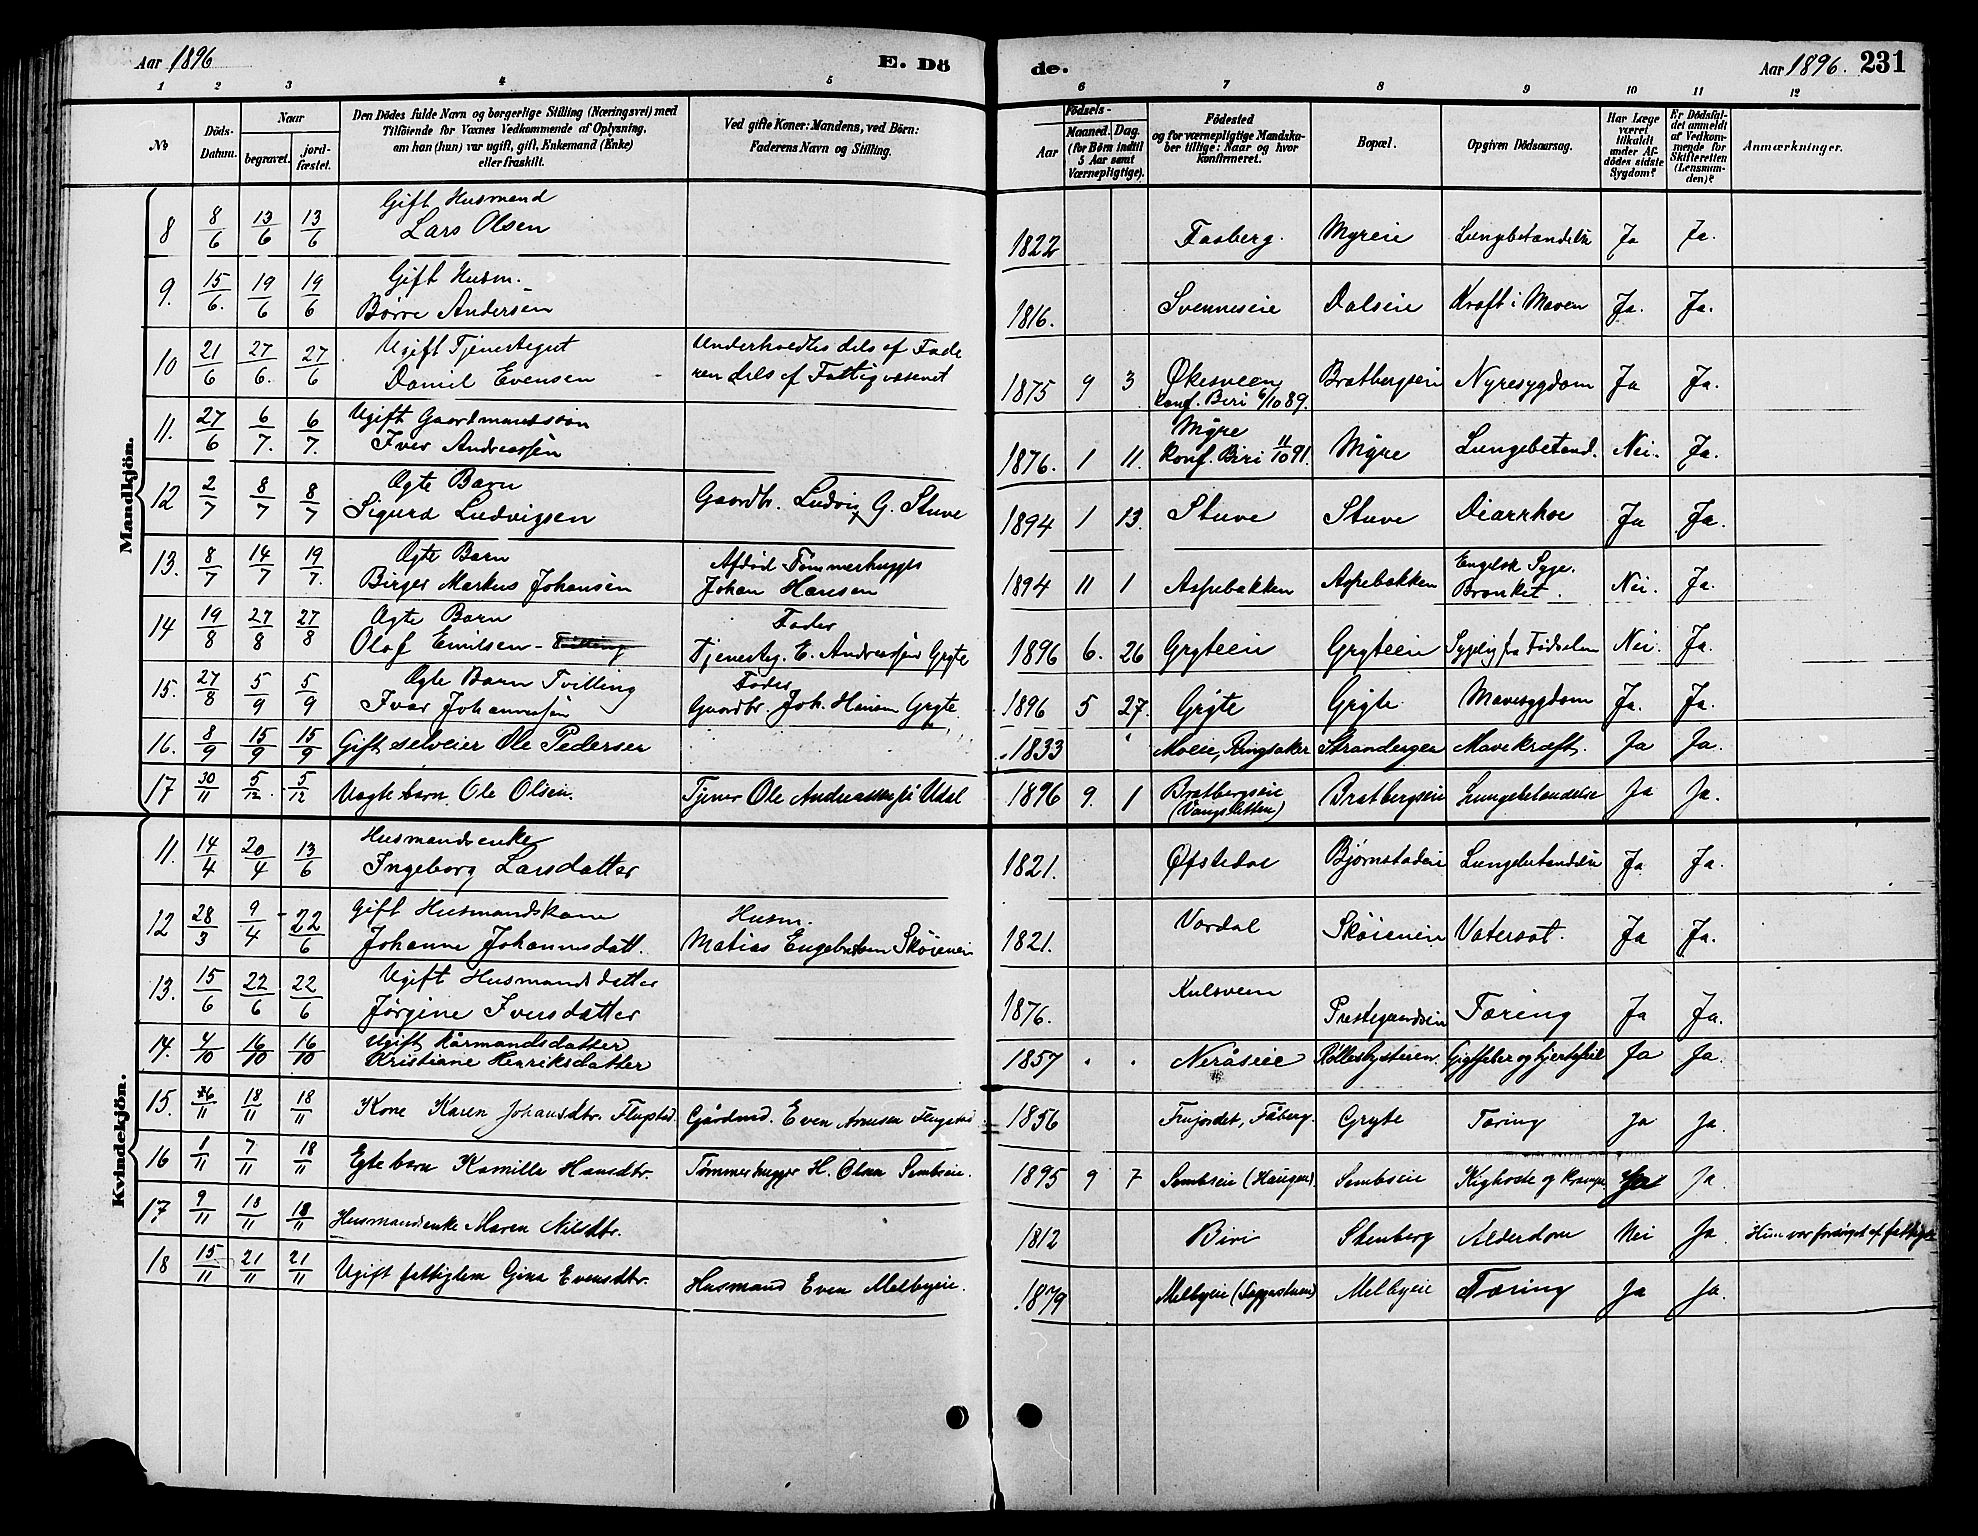 Aar 1896
E. Dö
de.
Aar 1896. 231
1 2 3 4 5 6 7 8 9 10 11 12
No
Döds-Datum.
Naar
begravet.
jord-fæstet.
Den Dödes fulde Navn og borgerlige Stilling (Næringsvei) med
Tilföiende for Voxnes Vedkommende af Oplysning,
om han (hun) var ugift, gift, Enkemand (Enke)
eller fraskilt.
Ved gifte Koner: Mandens, ved Börn:
Faderens Navn og Stilling.
Födsels-
Aar
Maaned. Dag.
(for Börn indtil
5 Aar samt
Værnepligtige).
Födested
og for værnepligtige Mandska-
ber tillige: Naar og hvor
konfirmeret.
Bopæl.
Opgiven Dödsaarsag.
Har Læge
været
tilkaldt
under Af-
dödes sidste
Sygdom?
Er Dödsfal-
det anmeldt
af Vedkom-
mende for
Skifteretten
(Lensman-
den)?
Anmærkninger.
Mandkjön.
8 8/6 13/6 13/6 Gift Husmand
Lars Olsen 1822 Faaberg. Myreie Lungebetændelse Ja Ja.
9. 15/6. 19/6 19/6 Gift Husm.
Børre Andersen 1816. Svenneseie Dalseie Kræft i Maven Ja. Ja.
10 21/6 27/6. 27/6 Ugift Tjenestegut
Daniel Evensen Underholdtes dels af Fade
ren dels af Fattigvæsenet 1875 9 3 Økesveen
Konf. Biri 6/10 89. Bratbergseie Nyresygdom Ja Ja.
11. 27/6 6/7. 6/7. Ugift Gaardmandssøn
Iver Andreassen 1876. 1 11. Myre
Konf. Biri 11/10 91. Myre Lungebetænd. Nei. Ja.
12 2/7 8/7 8/7 Ægte Barn
Sigurd Ludvigsen Gaardbr. Ludvig G. Stuve 1894 1 13. Stuve Stuve Diarrhoe Ja Ja.
13. 8/7 14/7 19/7. Ægte Barn
Birger Markus Johansen Afdød Tømmerhugger
Johan Hansen 1894 11 1 Aspebakken Aspebakken Engelsk Syge.
Bronket. Nei. Ja.
14 19/8 27/8 27/8 Ægte Barn
Olaf Emilsen - Tvilling Fader
Tjenesteg. E. Andreassen Gryte 1896 6. 26 Gryteeien Gryteeien Sygelig fra Fødselen Nei. Ja.
15. 27/8 5/9 5/9 Ægte Barn Tvilling
Ivar Johannessen Fader
Gaardbr. Joh. Hansen Gryte. 1896 5 27. Gryte Gryte Mavesygdom Ja. Ja.
16. 8/9 15/9 15/9 Gift selveier Ole Pedersen 1833 Moeie, Ringsaker Strandengen Mavekræft. Ja Ja.
17 30/11 5/12. 5/12 Uægte barn Ole Olsen. Tjener Ole Andreassen Udal 1896 9. 1 Bratbergseie
(Vangsletten) Bratbergseie Lungebetændelse Ja Ja.
Kvindekjön.
11. 14/4 20/4 13/6 Husmandsenke
Ingeborg Larsdatter 1821. Øfstedal Bjørnstadeie Lungebetændelse Ja Ja.
12 28/3 9/4 22/6 Gift Husmandskone
Johanne Johannesdatt. Husm.
Matias Engebretsen Skøieneie 1821. Vardal Skøieneie Vatersot. Ja Ja.
13. 15/6 22/6 22/6 Ugift Husmandsdatter
Jørgine Iversdatter 1876. Kulsveen Prestegaardseie Tæring Ja Ja.
14. 4/10 16/10 16/10 Ugift Kårmandsdatter
Kristiane Henriksdatter 1857 Neråseie Gigtfeber og hjertefeil Ja Ja.
15. 11 18/11 18/11 Kone Karen Johansdtr. Flugstad. Gårdmd. Even Arnesen Flugstad 1856 Frujordet, Fåberg. Gryte Tæring Ja Ja.
16 1/11 7/11 18/11 Egte barn Kamilla Hansdtr. Tømmerhugger H. Olsen Sembseie. 1895 9 7 Sembseie (Haugen) Sembseie Kighoste og Krampe Ja Ja.
17 9/11 18/11 18/11 Husmandsenke Maren Nilsdtr. 1812 Biri Stenberg Alderdom Nei Ja. Hun var forsørget af fattigv.
18 15/11 21/11 21/11 Ugift fattiglem Gina Evensdtr. Husmand Even Melbyeie. 1879 Melbyeie Melbyeie Tæring Ja Ja.